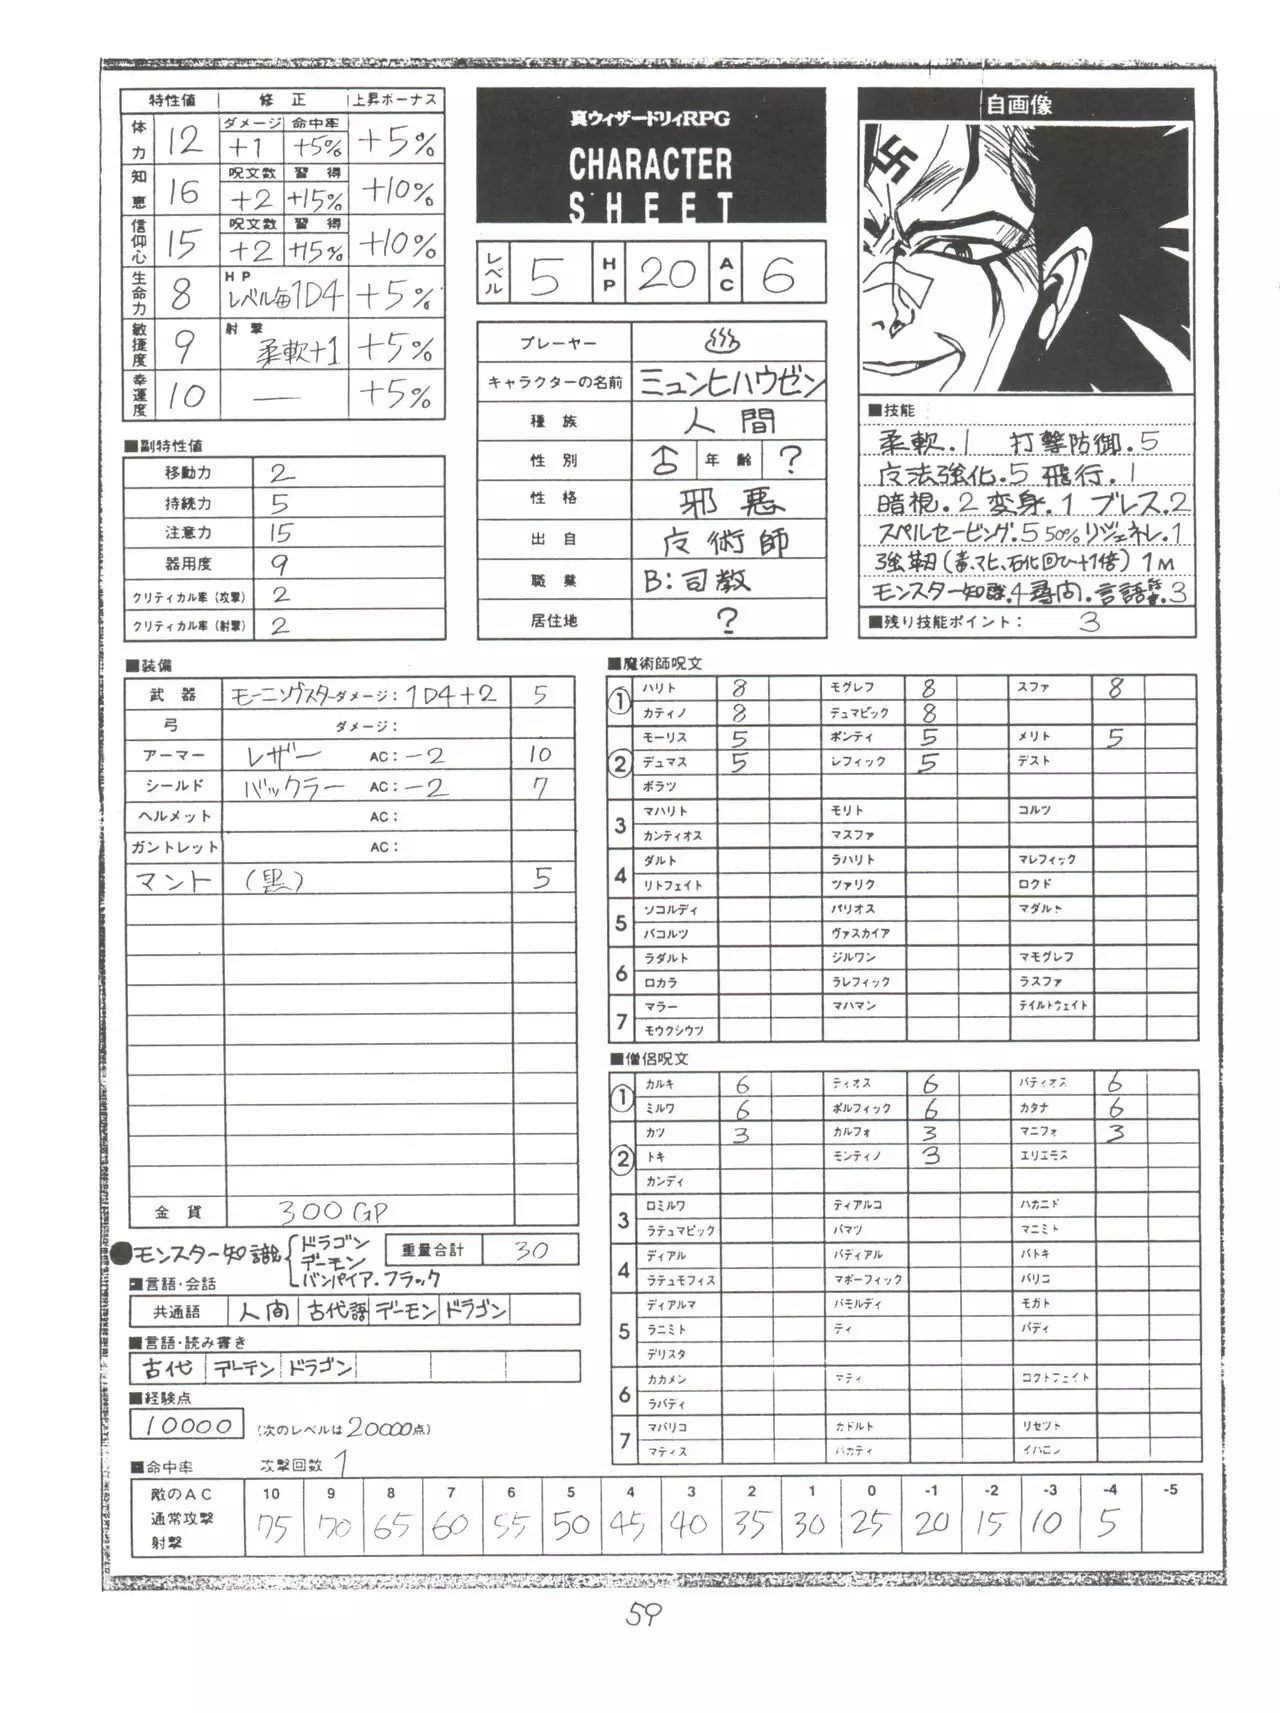 特性値 修正 上昇ボーナス
体力 12 ダメージ +1 命中率 +5% +5%
知恵 16 呪文数 +2 習得 +15% +10%
信仰心 15 呪文数 +2 習得 +15% +10%
生命力 8 HP レベル毎1D4 +5%
敏捷度 9 射撃 柔軟+1 +5%
幸運度 10 — +5%
■副特性値
移動力 2
持続力 5
注意力 15
器用度 9
クリティカル率(攻撃) 2
クリティカル率(射撃) 2
真ウィザードリィRPG
CHARACTER
SHEET
レベル 5 HP 20 AC 6
プレーヤー ♨
キャラクターの名前 ミュンヒハウゼン
種族 人間
性別 ♂ 年齢 ?
性格 邪悪
出自 魔術師
職業 B:司教
居住地 ?
自画像
卐
■技能
柔軟.1 打撃防御.5
魔法強化.5 飛行.1
暗視.2 変身.1 ブレス.2
スペルセービング.5 50% リジェネレ.1
強靭(毒、マヒ、石化回ひ+1倍)1M
モンスター知識.4 尋問.言語 .3
■残り技能ポイント: 3
■装備
武器 モーニングスター ダメージ:1D4+2 5
弓 ダメージ:
アーマー レザー AC:-2 10
シールド バックラー AC:-2 7
ヘルメット AC:
ガントレット AC:
マント (黒) 5
金貨 300GP
●モンスター知識 ドラゴン デーモン バンパイア.フラック
重量合計 30
■言語・会話
共通語 人間 古代語 デーモン ドラゴン
■言語・読み書き
古代 デーモン ドラゴン
■経験点
10000 (次のレベルは20000点)
■魔術師呪文
① ハリト 8 モグレフ 8 スファ 8
カティノ 8 デュマピック 8
② モーリス 5 ボンティ 5 メリト 5
デュマス 5 レフィック 5 デスト
ボラツ
3 マハリト モリト コルツ
カンティオス マスファ
4 ダルト ラハリト マレフィック
リトフェイト ツァリク ロクド
5 ソコルディ パリオス マダルト
バコルツ ヴァスカイア
6 ラダルト ジルワン マモグレフ
ロカラ ラレフィック ラスファ
7 マラー マハマン テイルトウェイト
モウクシウツ
■僧侶呪文
① カルキ 6 ティオス 6 バティオス 6
ミルワ 6 ポルフィック 6 カタナ 6
② カツ 3 カルフォ 3 マニフォ 3
トキ モンティノ 3 エリエモス
カンディ
3 ロミルワ ディアルコ ハカニド
ラテュマピック バマツ マニミト
4 ディアル バディアル バトキ
ラテュモフィス マポーフィック バリコ
5 ディアルマ バモルディ モガト
ラニミト ティ バディ
デリスタ
6 カカメン マディ ロクトフェイト
ラバディ
7 マバリコ カドルト リセツト
マディス バカディ イハロン
■命中率 攻撃回数 1
敵のAC 10 9 8 7 6 5 4 3 2 1 0 -1 -2 -3 -4 -5
通常攻撃 75 70 65 60 55 50 45 40 35 30 25 20 15 10 5
射撃
59